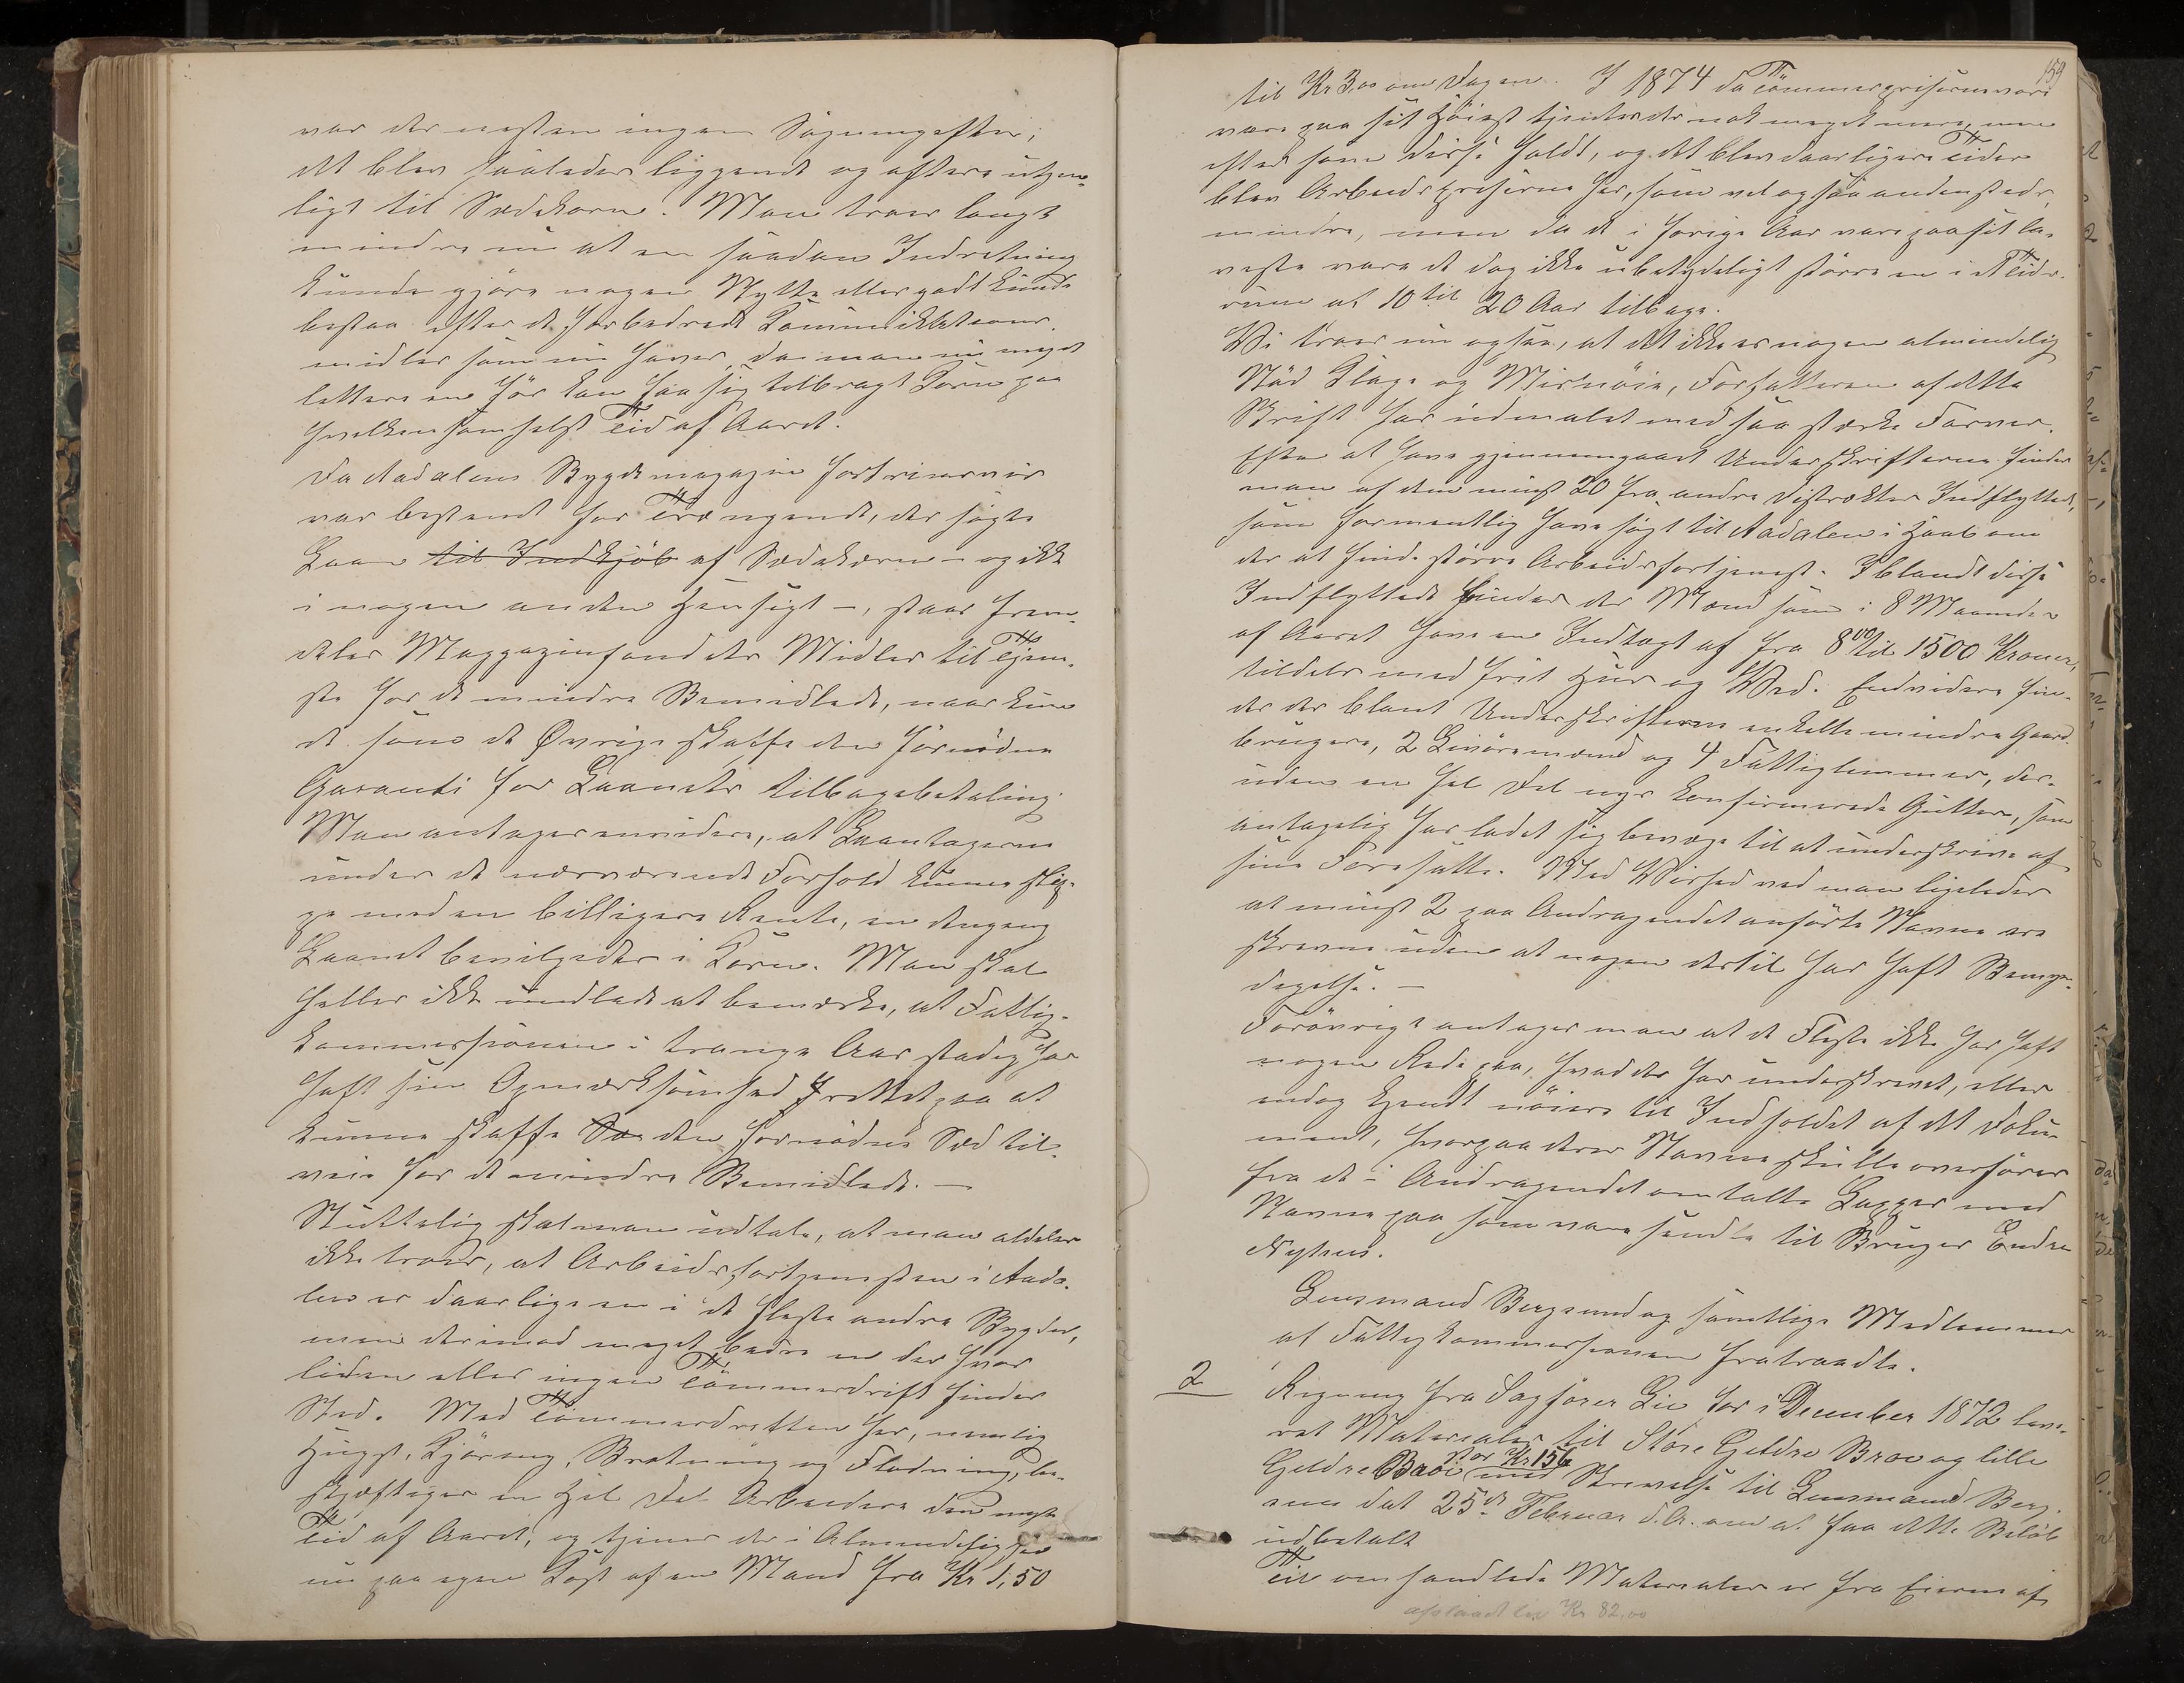 var der næsten ingen Søgning efter;
det blev saaledes liggende og oftere utjen-
ligt til Sædekorn. Man troer langt
mindre nu at en saadan Indretning
kunde gjøre nogen Nytte eller godt kunde
bestaa efter de forbedrede Kommunikations-
midler som nu haves, da man nu meget
lettere en før kan faa sig tilbragt Korn paa
hvilkensomhelst Tid af Aaret.
Da Aadalens Bygdemagazin
var bestemt for Trængende, der søgte
Laan til Indkjøb af Sædekorn – og ikke
i nogen anden Hensigt –, staar frem-
deles Maggazinfondets Midler til Tjene-
ste for de mindre Bemidlede, naar kun
de som de Øvrige skaffe den fornødne
Garanti for Laanets Tilbagebetaling.
Man antager envidere, at Laantagerne
under de nærværende Forhold kunne
med en billigere Rente, en dengang
Laanet bevilgedes i Korn. Man skal
heller ikke undlade at bemærke, at Fattig-
kommissionen i trange Aar stadig har
haft sin Opmærksomhed rettet paa at
kunne skaffe den fornødne Sæd til-
veie for de mindre Bemidlede. –
Sluttelig skal man udtale, at man aldeles
ikke troer, at Arbeidsfortjenesten i Aada-
len er daarligere en i de fleste andre Bygder,
men derimod meget bedre en der hvor
liden eller ingen Tømmerdrift finder
Sted. Med Tømmerdriften her, nemlig
Hugst, Kjøring, Brøtning og Flødning, be-
skjæftiges en Hel Del Arbeidere den meste
Tid af Aaret, og tjener de i Almindelighed
nu paa egen Kost af en Mand fra Kr 1,50
159
til Kr 3,00 om Dagen. I 1874 da Tømmerpriserne vare
vare paa sit Høieste tjentes der nok meget mere, men
efter som disse faldt, og det blev daarligere Tider
blev Arbeidspriserne her, som vel ogsaa andensteds,
mindre, men da de i forige Aar vare paa sit la-
veste vare de dog ikke ubetydeligt større en i et Tids-
rum af 10 til 20 Aar tilbage.
Vi troer nu ogsaa, at det ikke er nogen almindelig
Nød Klage og Misnøie, Forfatteren af dette
Skrift har udmalet med saa stærke Farver.
Efter at have gjennemgaaet Underskrifterne finder
man af dem minst 20 fra andre Distrikter Indflyttede,
som formentlig have søgt til Aadalen i Haab om
der at finde større Arbeidsfortjeneste. Iblandt disse
Indflyttede findes der Mænd som i 8 Maaneder
af Aaret have en Indtægt af fra 800 til 1500 Kroner,
tildels med frit Hus og Ved. Endvidere fin-
des der blant Underskrifterne enkelte mindre Gaard-
brugere, 2 Livøremænd og 4 Fattiglemmer, des-
uden en hel Del nys konfirmerede Gutter, som
antagelig har ladet sig bevæge til at underskrive af
sine Foresatte. Med Vished ved man ligeledes
at minst 2 paa Andragendet anførte Navne ere
skrevne uden at nogen dertil har haft Bemyn-
digelse. –
Forøvrigt antager man at de Fleste ikke har haft
nogen Rede paa, hvad de har underskrevet, eller
endog kjendt nøiere til Indholdet af det Doku-
ment, hvorpaa deres Navne skulle overføres
fra de i Andragendet omtalte Lapper med
Navne paa som vare sendte til Bruger Endre
Nyhus.
Lensmand Berg samt samtlige Medlemmer
af Fattigkommissionen fratraadte.
2 Regning fra Sagfører Lie for i December 1872 leve-
ret Materialer til Store Gjeldre Broe og lille
Gjeldre Broe stor Kr 156 med Skrivelse til Lensmand Berg
dat 25de Februar d. A. om at faa dette Beløb
udbetalt
Til omhandlede Materialer er fra Eieren af
Kr 82,00